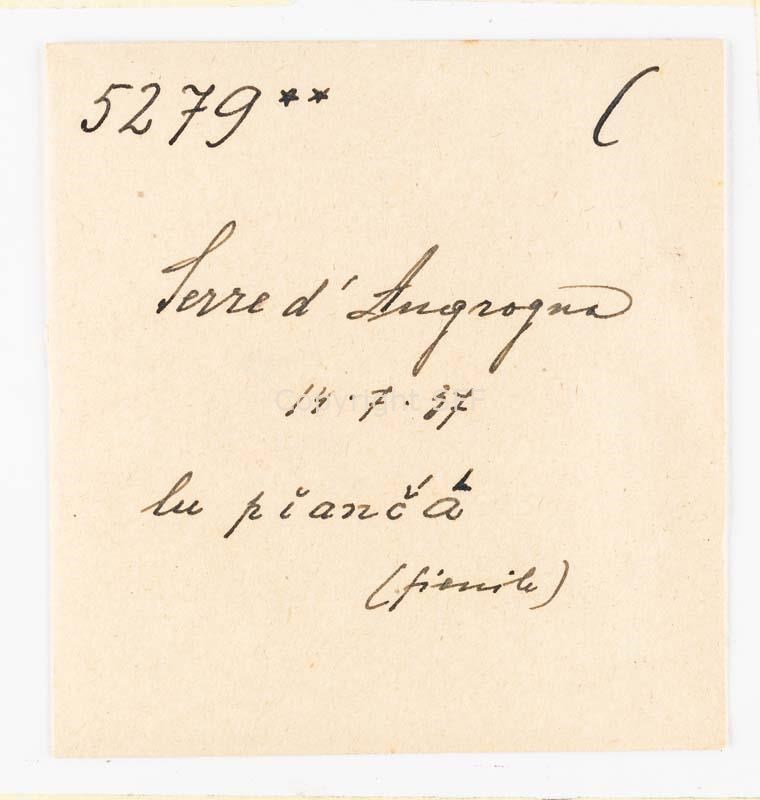 5279** (
Serre d'Angrogna
14·7·37
lu pĭančá
(fienile)